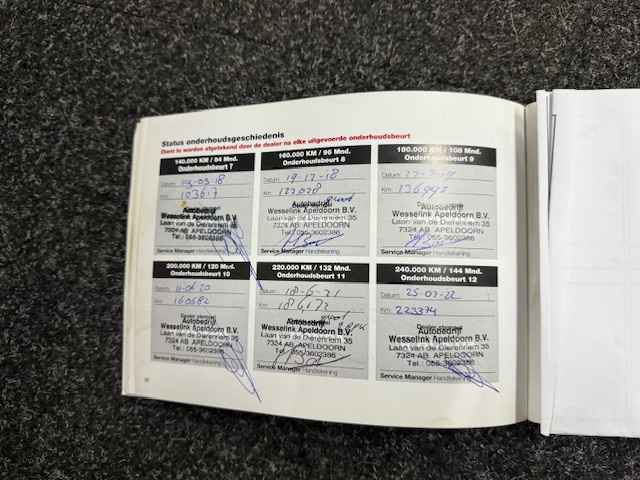 Status onderhoudsgeschiedenis
Dient te worden afgetekend door de dealer na elke uitgevoerde onderhoudsbeurt
140.000 KM / 84 Mnd.
Onderhoudsbeurt 7
Datum 03-18
Km
Autobedrijf
Wesselink Apeldoorn B.V.
Laan van de Dierenriem 35
7324 AB APELDOORN
Tel.: 055-3602386
Service Manager Handtekening
160.000 KM / 96 Mnd.
Onderhoudsbeurt 8
Datum 19-12-18
Km
Autobedrijf
Wesselink Apeldoorn B.V.
Laan van de Dierenriem 35
7324 AB APELDOORN
Tel.: 055-3602386
Service Manager Handtekening
180.000 KM / 108 Mnd.
Onderhoudsbeurt 9
Datum
Km
Autobedrijf
Wesselink Apeldoorn B.V.
Laan van de Dierenriem 35
7324 AB APELDOORN
Tel.: 055-3602386
Service Manager Handtekening
200.000 KM / 120 Mnd.
Onderhoudsbeurt 10
Datum
Km 160582
Autobedrijf
Wesselink Apeldoorn B.V.
Laan van de Dierenriem 35
7324 AB APELDOORN
Tel.: 055-3602386
Service Manager Handtekening
220.000 KM / 132 Mnd.
Onderhoudsbeurt 11
Datum 18-6-21
Km
Autobedrijf
Wesselink Apeldoorn B.V.
Laan van de Dierenriem 35
7324 AB APELDOORN
Tel.: 055-3602386
Service Manager Handtekening
240.000 KM / 144 Mnd.
Onderhoudsbeurt 12
Datum 25-07-22
Km 223374
Dealer stempel
Autobedrijf
Wesselink Apeldoorn B.V.
Laan van de Dierenriem 35
7324 AB APELDOORN
Tel.: 055-3602386
Service Manager Handtekening